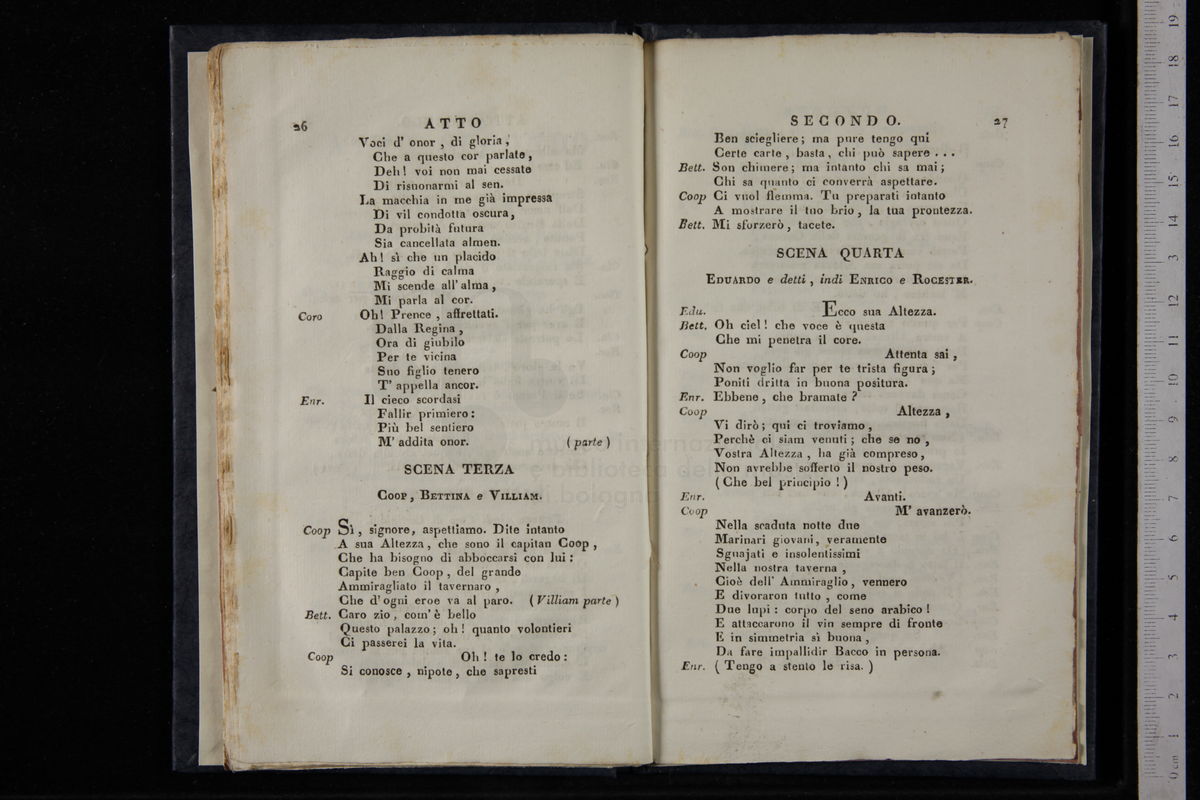 26
ATTO
Voci d' onor , di gloria ,
Che a questo cor parlate ,
Deh ! voi non mai cessate
Di risuonarmi al sen.
La macchia in me già impressa
Di vil condotta oscura,
Da probità futura
Sia cancellata almen.
Ah ! sì che un placido
Raggio di calma
Mi scende all' alma ,
Mi parla al cor.
Coro Oh! Prence , affrettati.
Dalla Regina ,
Ora di giubilo
Per te vicina
Suo figlio tenero
T' appella ancor.
Enr. Il cieco scordasi
Fallir primiero :
Più bel sentiero
M' addita onor. ( parte )
SCENA TERZA
COOP , BETTINA e VILLIAM.
Coop Sì , signore, aspettiamo. Dite intanto
A sua Altezza , che sono il capitan Coop ,
Che ha bisogno di abboccarsi con lui :
Capite ben Coop , del grande
Ammiragliato il tavernaro ,
Che d' ogni eroe va al paro. ( Villiam parte )
Bett. Caro zio , com' è bello
Questo palazzo ; oh ! quanto volontieri
Ci passerei la vita.
Coop Oh ! te lo credo :
Si conosce , nipote , che sapresti
SECONDO.
27
Ben sciegliere ; ma pure tengo qui
Certe carte , basta , chi può sapere . . .
Bett. Son chimere ; ma intanto chi sa mai ;
Chi sa quanto ci converrà aspettare.
Coop Ci vuol flemma. Tu preparati intanto
A mostrare il tuo brio , la tua prontezza.
Bett. Mi sforzerò , tacete.
SCENA QUARTA
EDUARDO e detti , indi ENRICO e ROCESTER.
Edu. Ecco sua Altezza.
Bett. Oh ciel ! che voce è questa
Che mi penetra il core.
Coop Attenta sai ,
Non voglio far per te trista figura ;
Poniti dritta in buona positura.
Enr. Ebbene , che bramate ?
Coop Altezza ,
Vi dirò ; qui ci troviamo ,
Perchè ci siam venuti ; che se no ,
Vostra Altezza , ha già compreso ,
Non avrebbe sofferto il nostro peso.
( Che bel principio ! )
Enr. Avanti.
Coop M' avanzerò.
Nella scaduta notte due
Marinari giovani, veramente
Sguajati e insolentissimi
Nella nostra taverna ,
Cioè dell' Ammiraglio , vennero
E divoraron tutto , come
Due lupi : corpo del seno arabico !
E attaccarono il vin sempre di fronte
E in simmetria sì buona ,
Da fare impallidir Bacco in persona.
Enr. ( Tengo a stento le risa. )
museo internaz
e biblioteca del
di bologna
0 cm 1 2 3 4 5 6 7 8 9 10 11 12 13 14 15 16 17 18 19